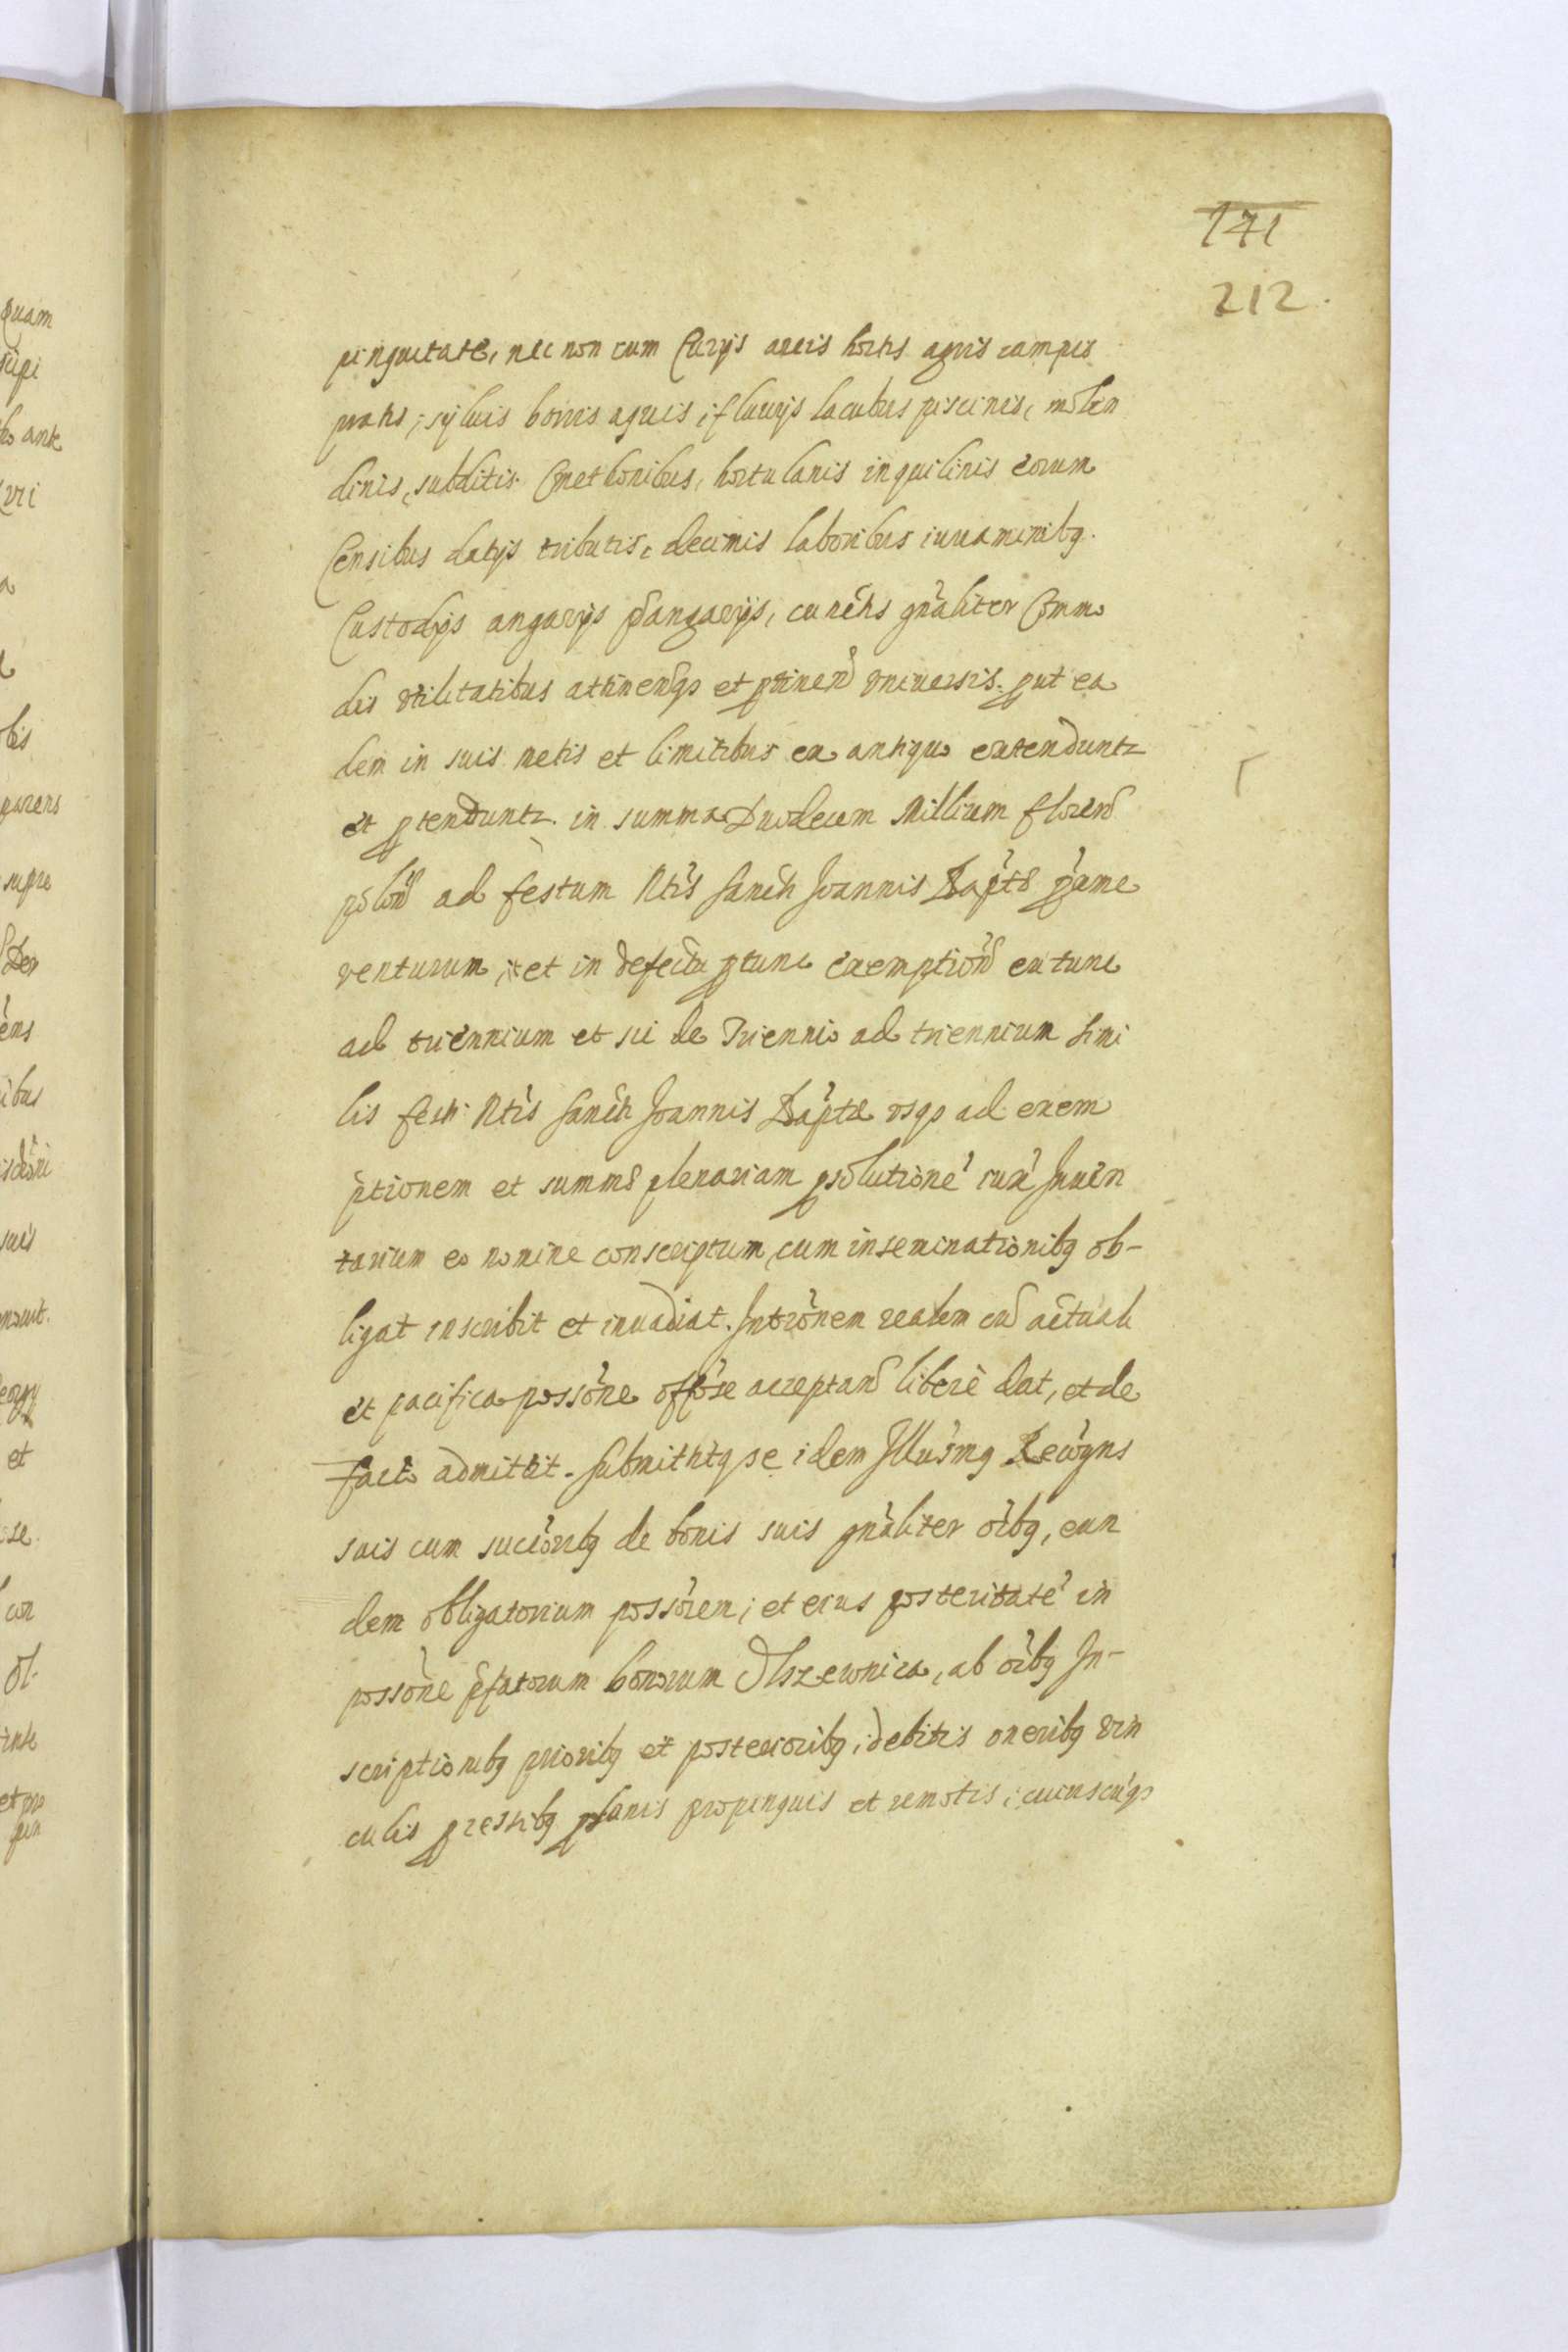 171
212.
pinguitate, nec non cum Curijs areis hortis agris campis
pratis, syluis borris aquis, fluuijs lacubus piscinis, molen
dinis, subditis Cmethonibus, hortulanis inquilinis eorum
Censibus datijs tributis, decimis laboribus iuuaminibq.
Custodijs angarijs pangarijs, cunctis gnaliter Commo
dis vtilitatibus attinen~qs et ptinen~ vniuersis. put ea
dem in suis metis et limitibus ex antiquo extenduntr
et ptenduntr. in summa Duodecim Millium floren~
polon~ ad festum Ntis Sancti Joannis Bapte pxime
venturum, et in defectu ptunc exemption~ ex tunc
ad triennium et sic de Triennio ad triennium simi
lis festi Ntis Sancti Joannis Bapte vsqs ad exem
ptionem et summe plenariam psolutione iuxa Inuen
tarium eo nomine conscriptum, cum inseminationibq ob-
ligat inscribit et inuadiat. Intronem realem cu actuali
et pacifica possone offose acceptan~ libere dat, et de
facto admittit. Submittitq se idem Illusmq Recogns
suis cum succoribq de bonis suis gnaliter oibq, eun
dem obligatorium possorem, et eius posteritate in
possone pfatorum bonorum Olszewnica, ab oibq In-
scriptionibq prioribq et posterioribq, debitis oneribq vin
culis psonibq propinquis et remotis, cuiuscuqs
quam
ante
et